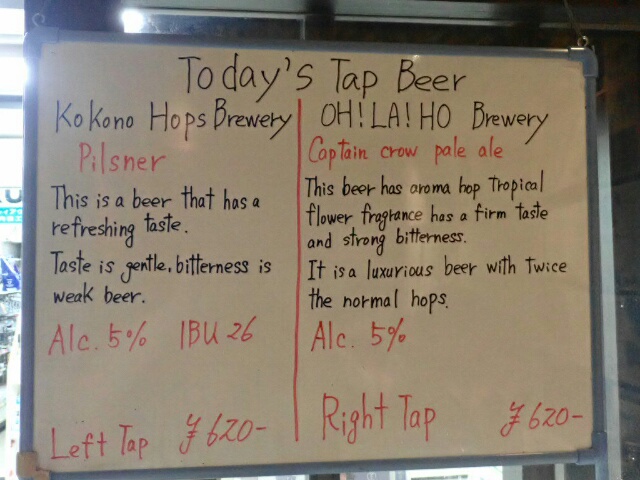 Today's Tap Beer
Kokono Hops Brewery
Pilsner
This is a beer that has a
refreshing taste.
Taste is gentle, bitterness is
weak beer.
Alc. 5% IBU 26
Left Tap ¥620-
OH! LA! HO Brewery
Captain crow pale ale
This beer has aroma hop Tropical
flower fragrance has a firm taste
and strong bitterness.
It is a luxurious beer with twice
the normal hops.
Alc. 5%
Right Tap ¥620-